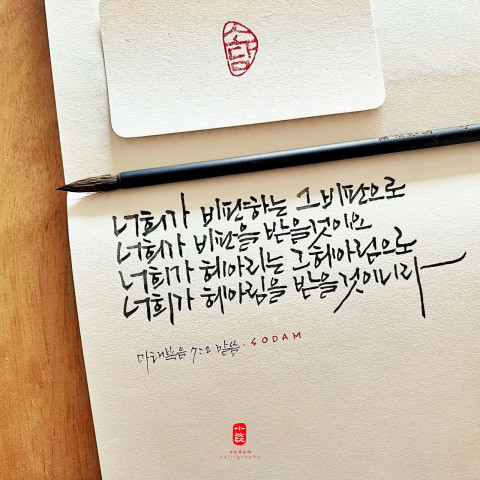 소담
너희가 비판하는 그 비판으로
너희가 비판을 받을 것이요
너희가 헤아리는 그 헤아림으로
너희가 헤아림을 받을 것이니라
마태복음 7:2 말씀. SODAM
sodam
calligraphy